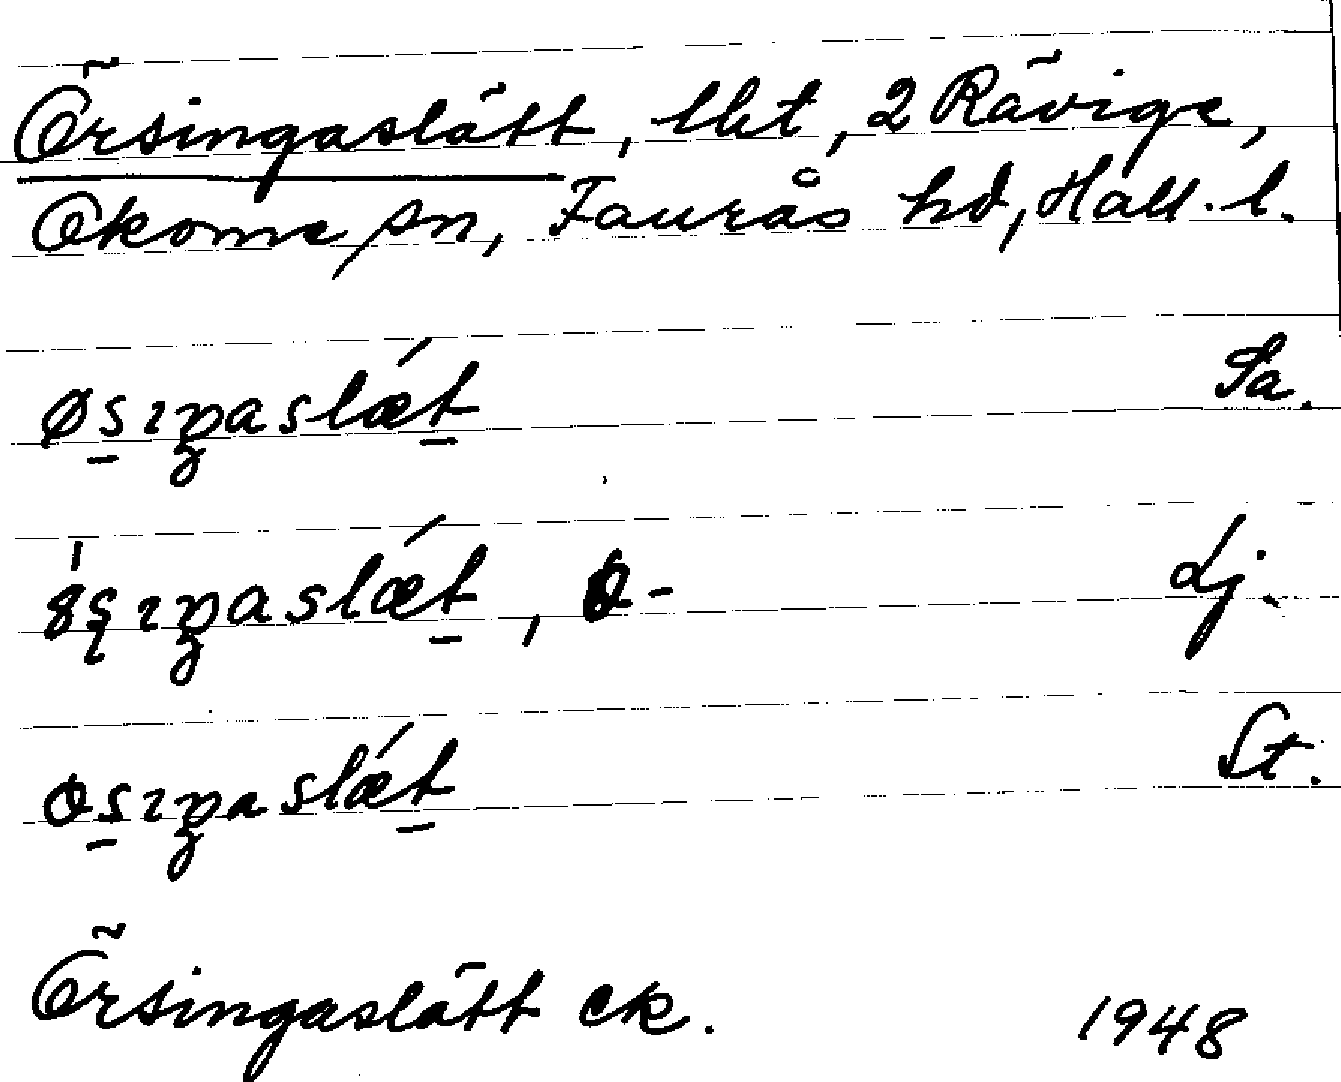 Örsingaslätt, lht, 2 Rävige,
Okome sn, Faurås hd, Hall. l.
øsıŋaslǽt Sa.
8sıŋaslǽt, o- Lj.
osıŋaslǽt St.
Örsingaslätt ek. 1948